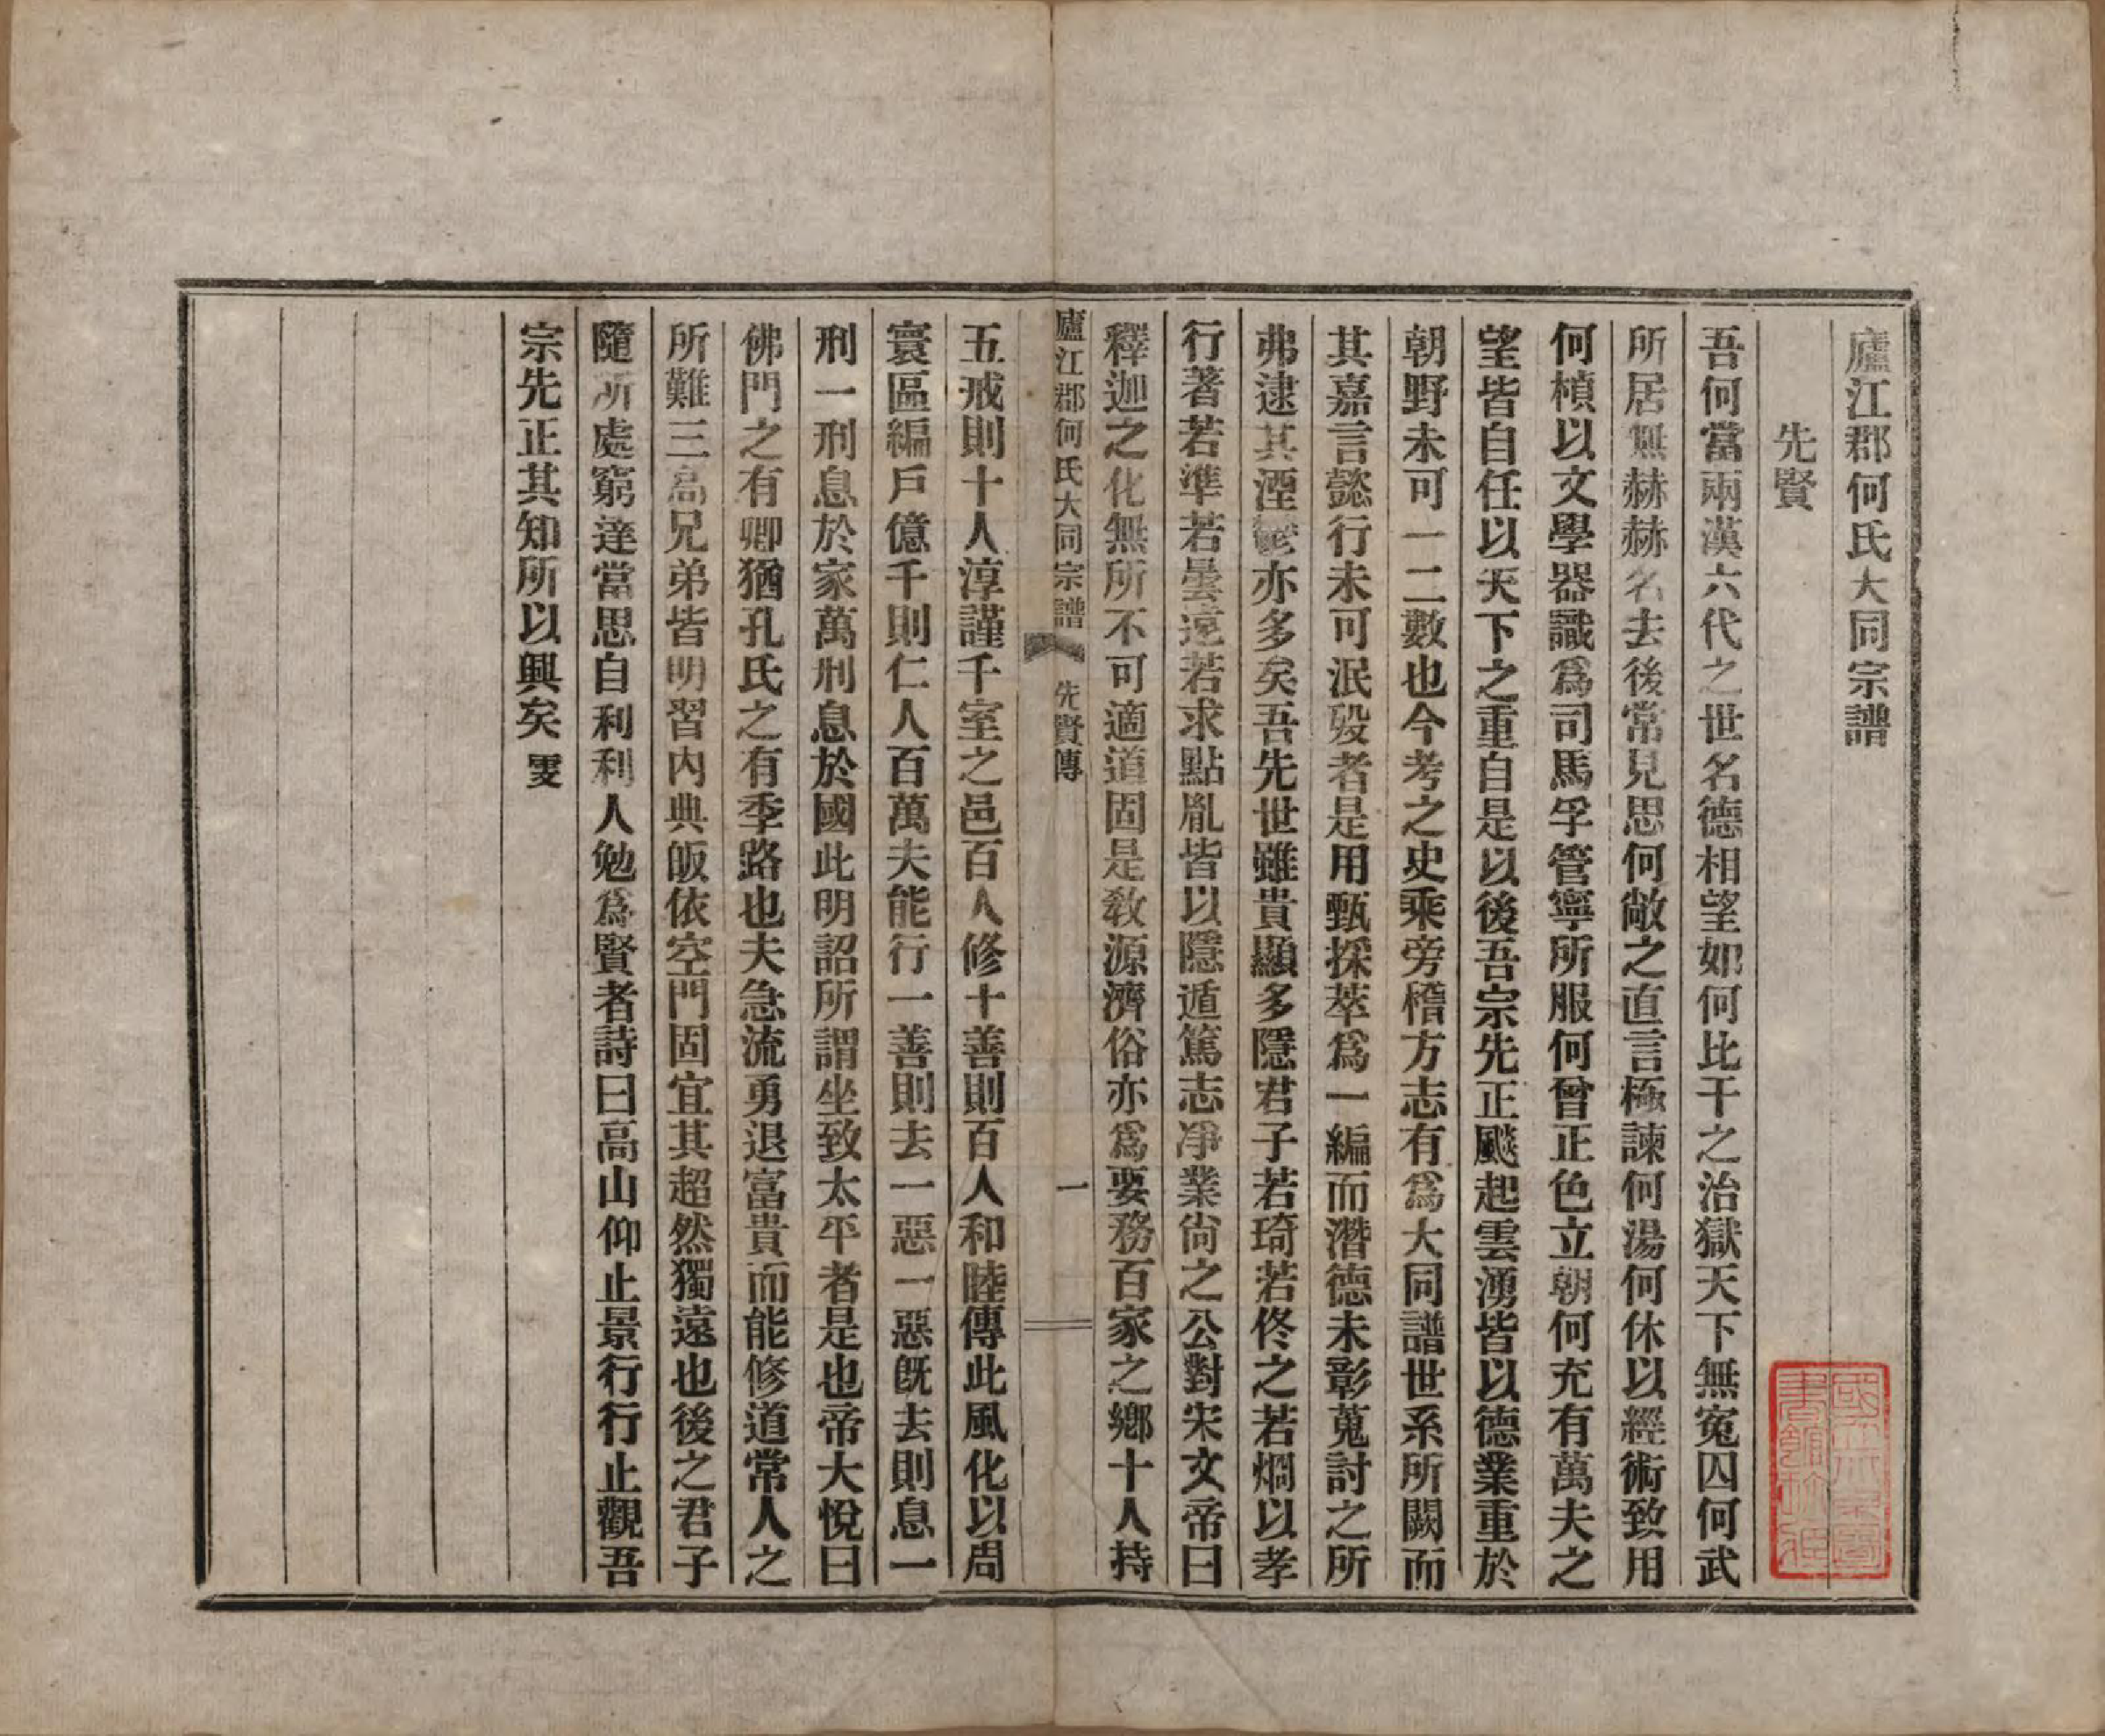 廬江郡何氏大同宗譜
先賢
吾何當兩漢六代之世名德相望如何比干之治獄天下無寃囚何武
所居無赫赫名去後常見思何敞之直言極諫何湯何休以經術致用
何楨以文學器識爲司馬孚管寧所服何曾正色立朝何充有萬夫之
望皆自任以天下之重自是以後吾宗先正飈起雲湧皆以德業重於
朝野未可一二數也今考之史乘旁稽方志有爲大同譜世系所闕而
其嘉言懿行未可泯歿者是用甄採萃爲一編而潛德未彰蒐討之所
弗逮其湮鬱亦多矣吾先世雖貴顯多隱君子若琦若佟之若烱以孝
行著若準若曇遠若求點胤皆以隱遁篤志凈業尙之公對宋文帝曰
釋迦之化無所不可適道固是敎源濟俗亦爲要務百家之鄕十人持
廬江郡何氏大同宗譜 先賢傳 一
五戒則十人淳謹千室之邑百人修十善則百人和睦傳此風化以周
寰區編戶億千則仁人百萬夫能行一善則去一惡一惡旣去則息一
刑一刑息於家萬刑息於國此明詔所謂坐致太平者是也帝大悅曰
佛門之有卿猶孔氏之有季路也夫急流勇退富貴而能修道常人之
所難三高兄弟皆明習內典皈依空門固宜其超然獨遠也後之君子
隨所處窮達當思自利利人勉爲賢者詩曰高山仰止景行行止觀吾
宗先正其知所以興矣 雯